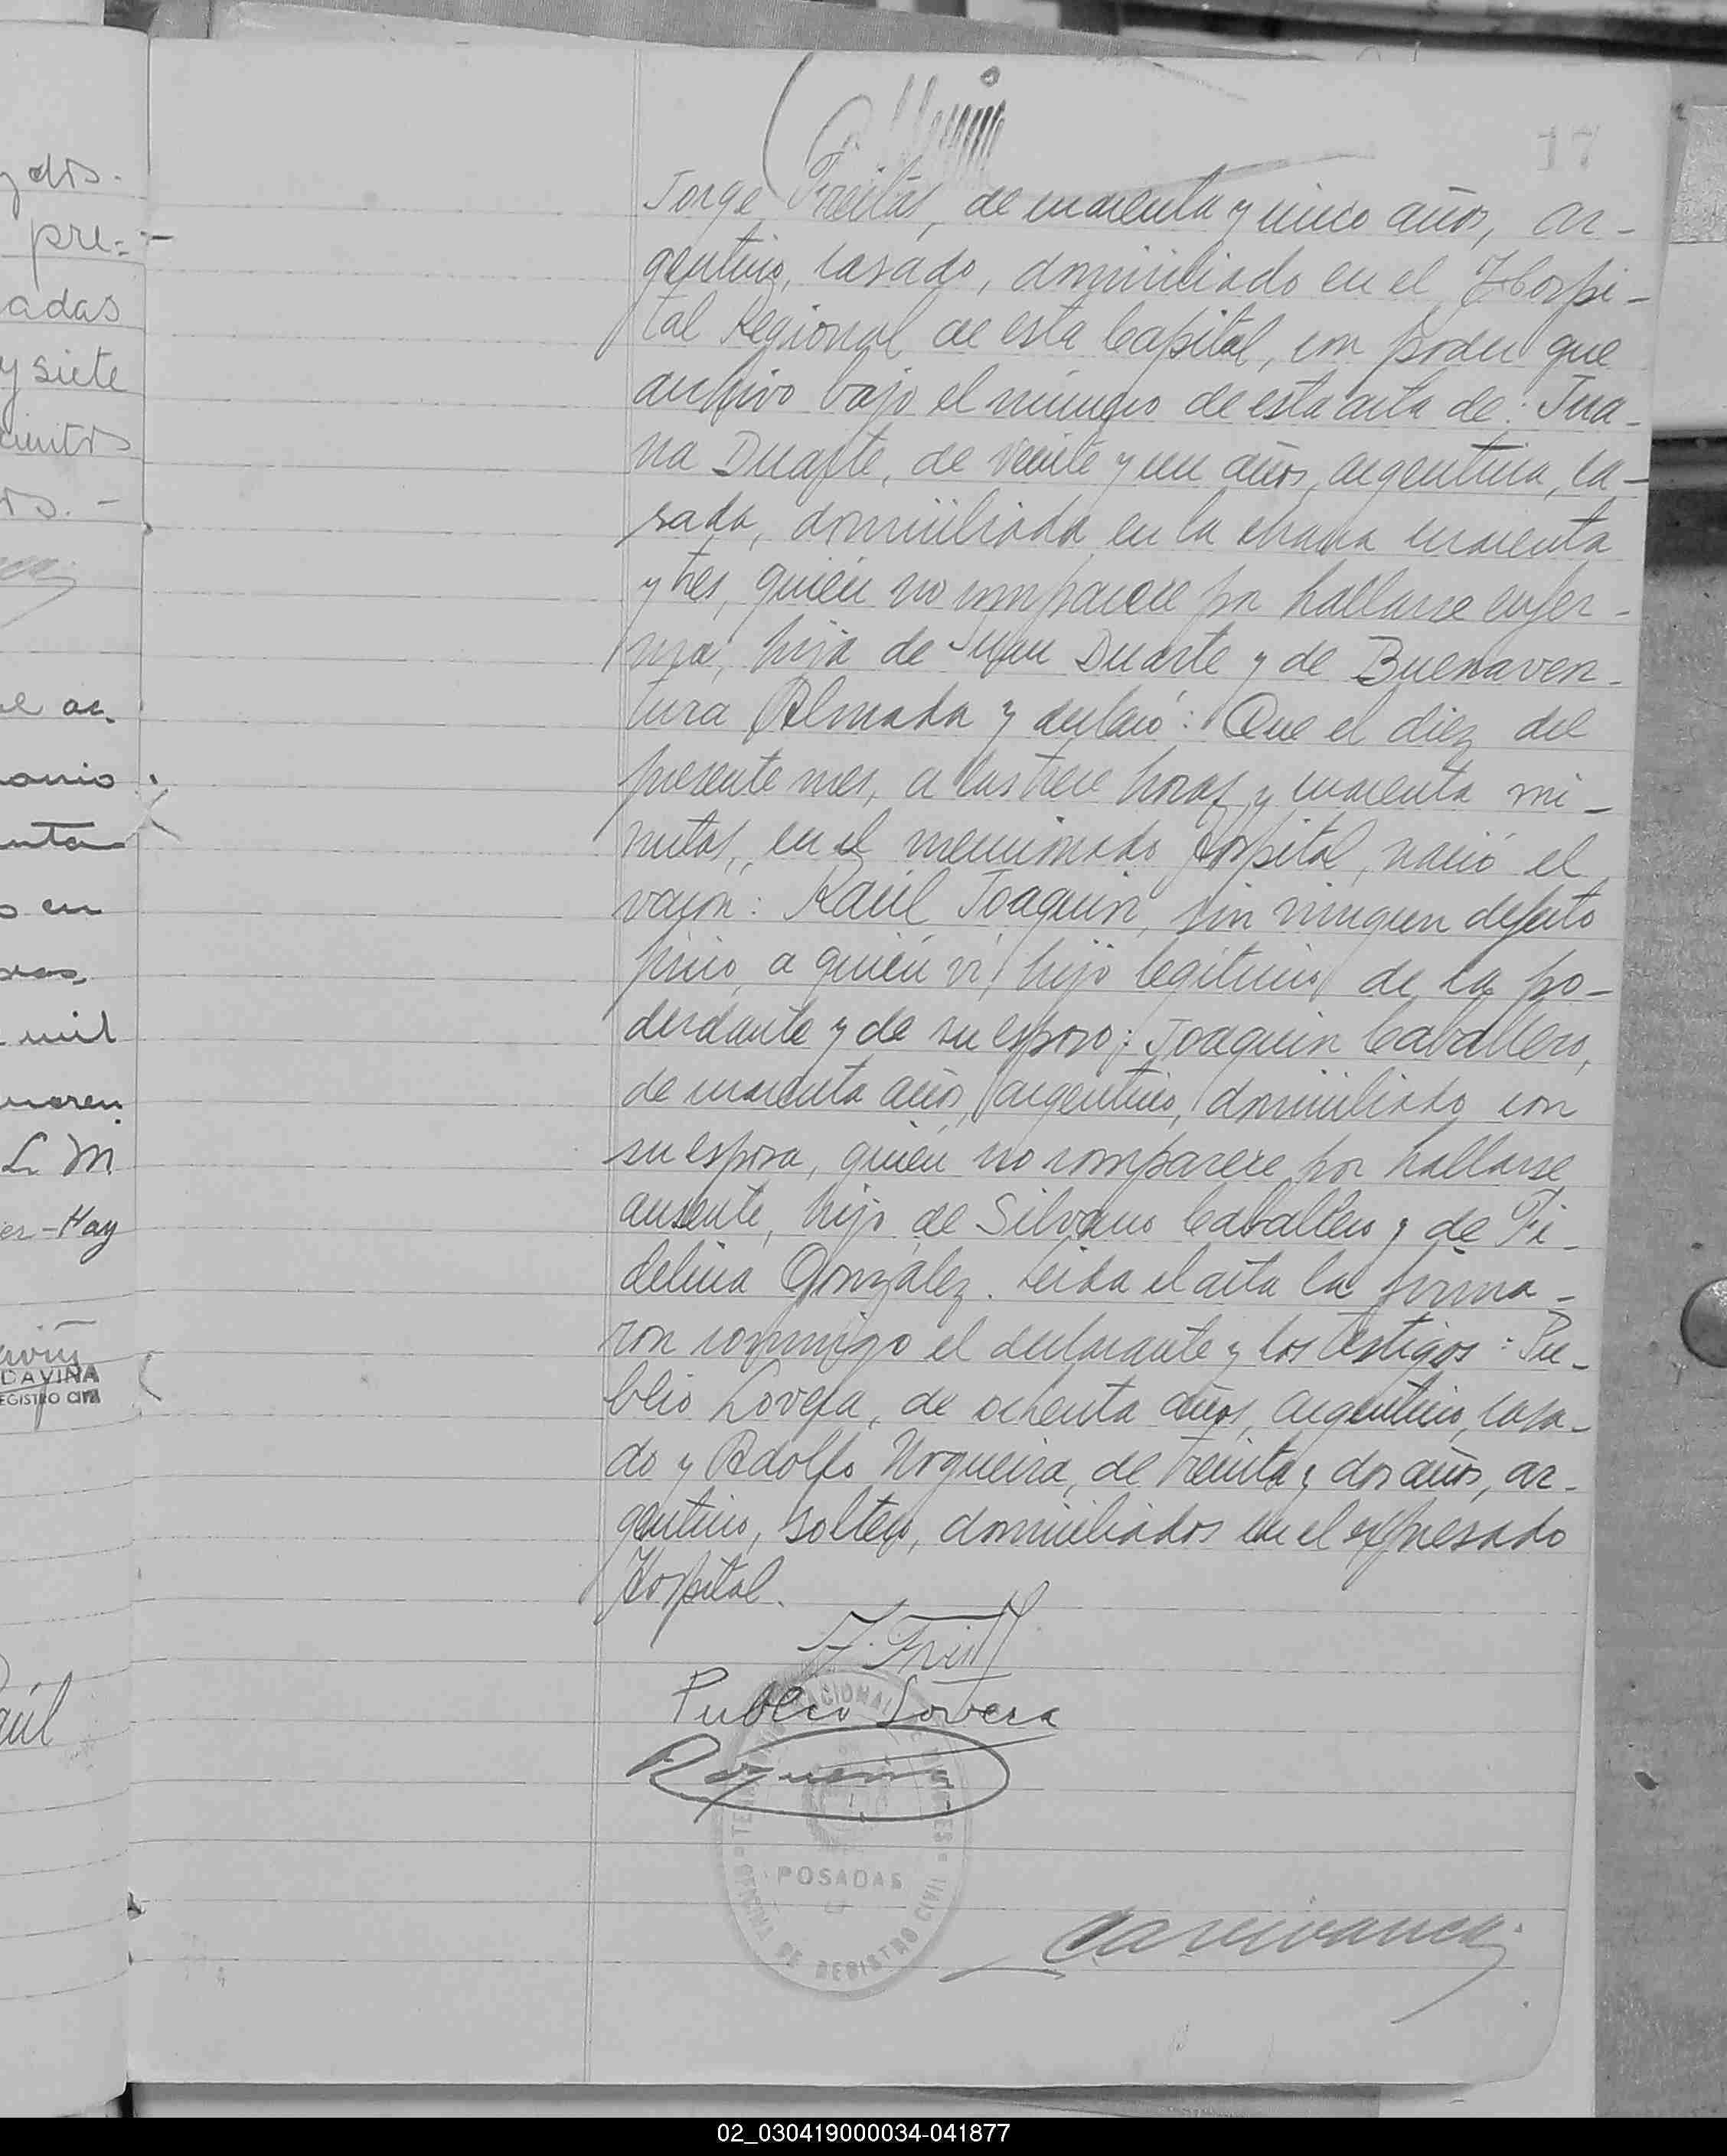 y dos.
pre=
adas
y siete
cientos
os. -
17
Jorge Freitas, de cuarenta y cinco años, ar-
gentino, casado, domiciliado en el Hospi-
tal Regional de esta Capital, con poder que
archivo bajo el número de esta acta de: Jua-
na Duarte, de veinte y un años, argentina, ca-
sada, domiciliada en la chacra cuarenta
y tres, quién no comparece por hallarse enfer-
ma, hija de Juan Duarte y de Buenaven-
tura Almada y declaró: Que el diez del
presente mes, a las trece horas y cuarenta mi-
nutos, en el mencionado Hospital, nació el
varon: Raúl Joaquin, sin ninguen defecto
fisico, a quién vi, hijo legitimo de la po-
derdante y de su esposo: Joaquin Caballero,
de cuarenta años, argentino, domiciliado con
su esposa, quién no comparece por hallarse
ausente, hijo de Silvano Caballero y de Fi-
delina González. Leida el acta la firma-
ron conmigo el declarante y los testigos: Pu-
blio Lovera, de ochenta años, argentino, casa-
do y Adolfo Nogueira, de treinta y dos años, ar-
gentino, soltero, domiciliados en el expresado
Hospital.
Publio Lovera
POSADAS
OFICINA DE REGISTRO CIVIL
mil
L M
-Hay
DAVIÑA
REGISTRO CIVIL
aúl
02_030419000034-041877